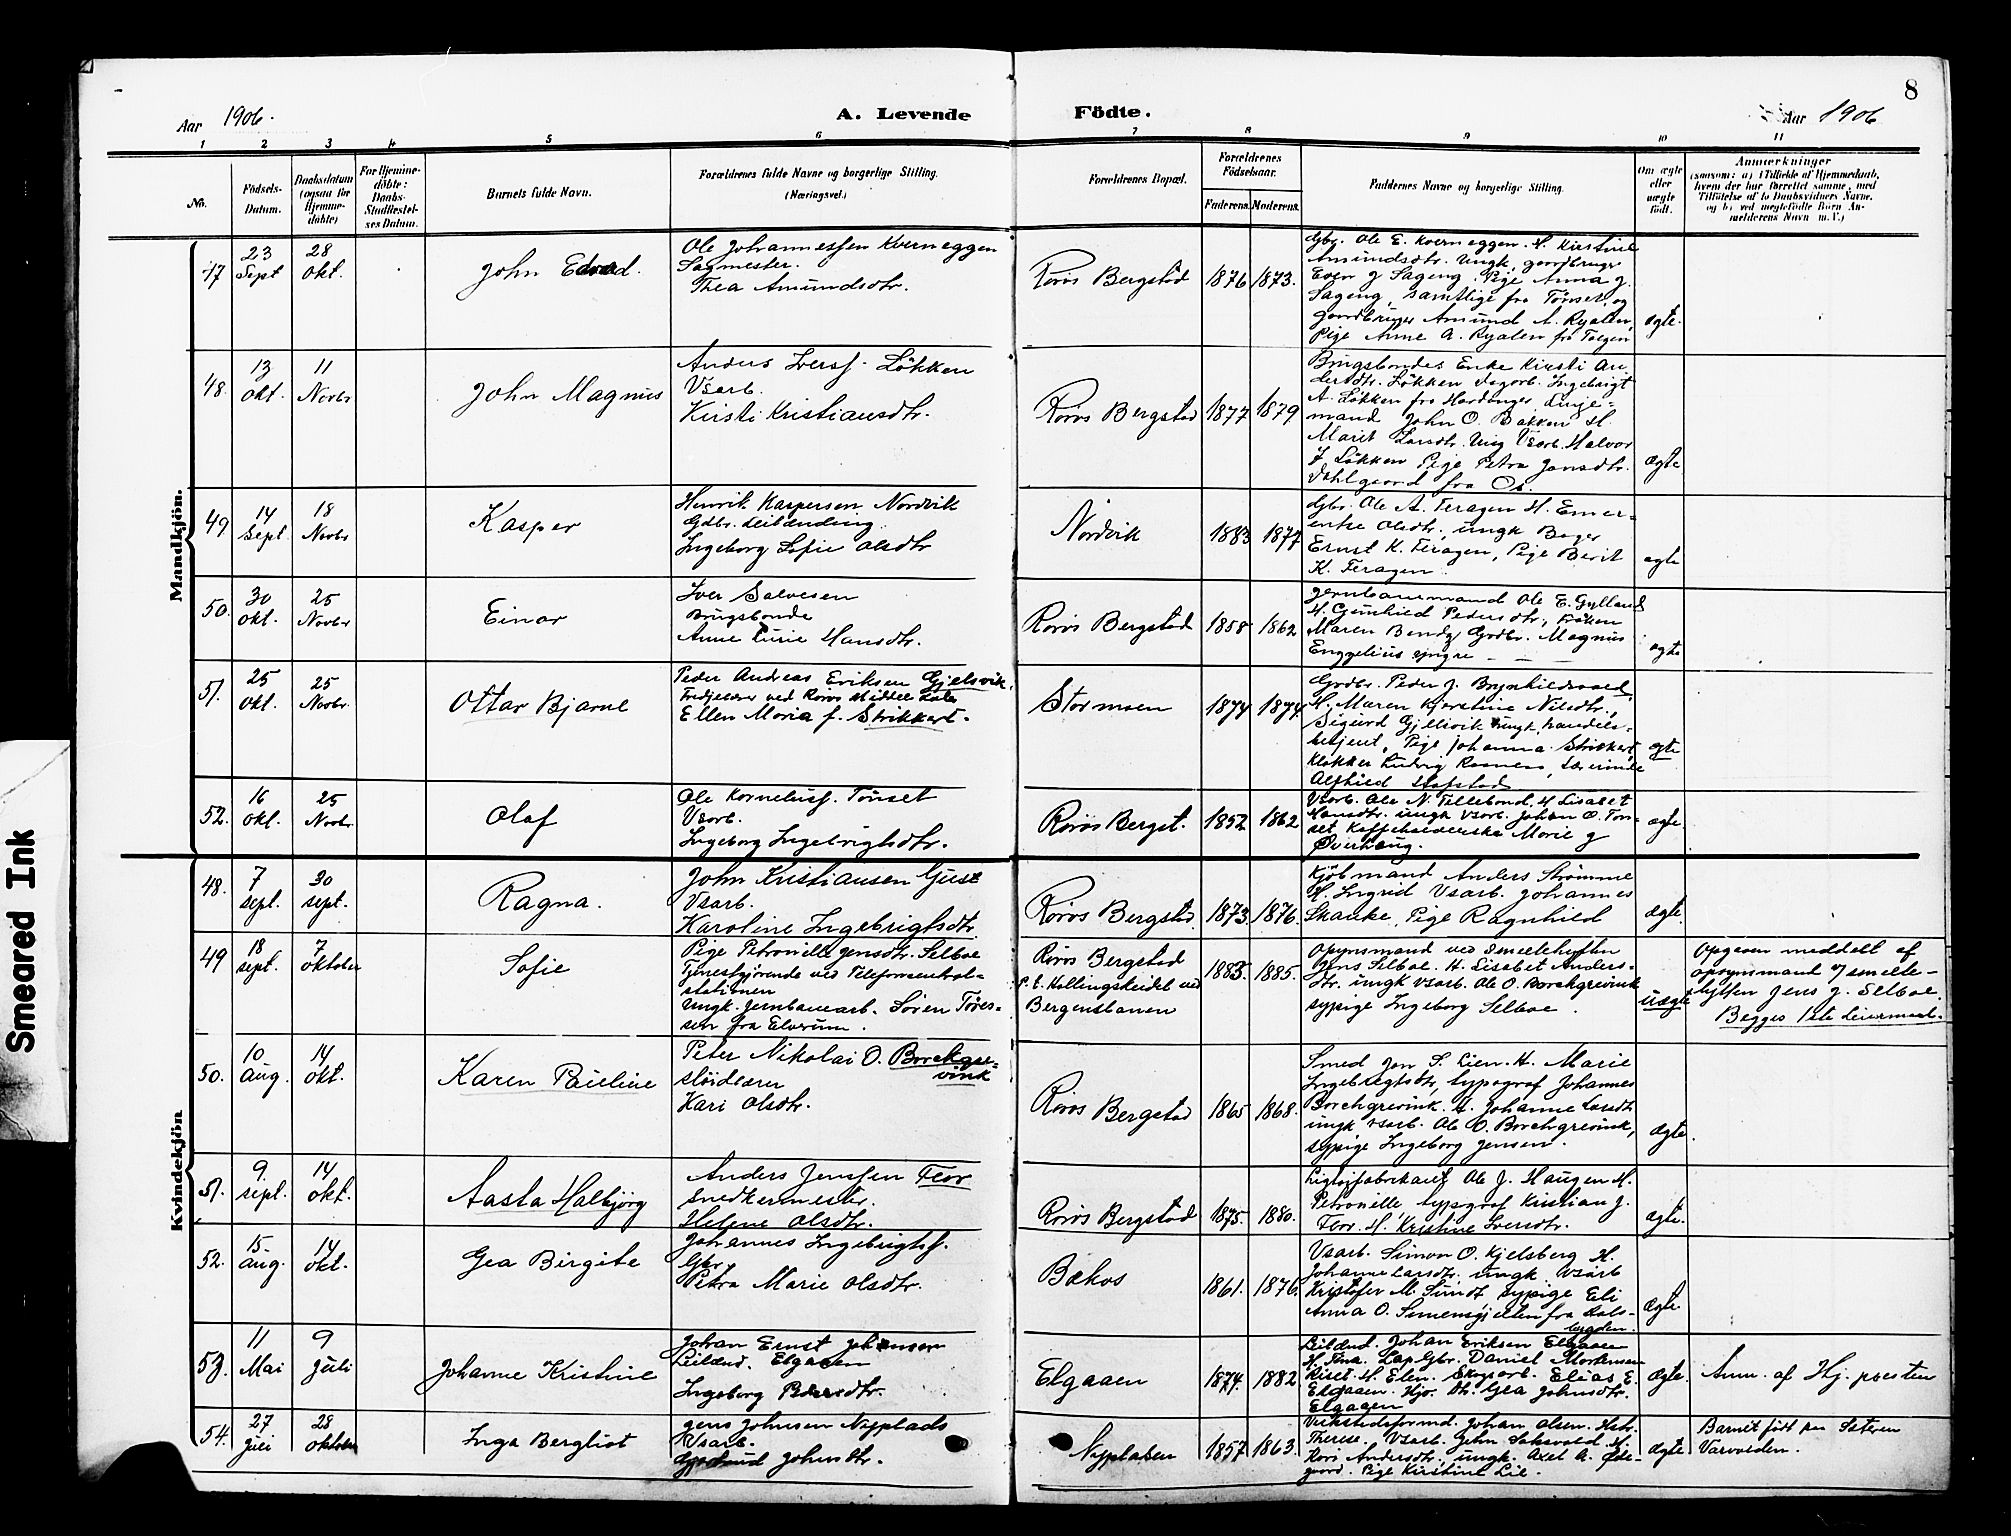 8
Aar 1906.
A. Levende
Födte.
Aar 1906
1 2 3 4 5 6 7 8 9 10 11
No.
Födsels-
Datum.
Daabsdatum
(ogsaa for
Hjemme-
döbte)
For Hjemme-
döbte:
Daabs-
Stadfæstel-
ses Datum.
Barnets fulde Navn.
Forældrenes fulde Navne og borgerlige Stilling.
(Næringsvei.)
Forældrenes Bopæl.
Forældrenes
Födselsaar.
Faderens. Moderens.
Faddernes Navne og borgerlige Stilling.
Om ægte
eller
uægte
födt.
Anmærkninger
(saasom: a) i Tilfælde af Hjemmedaab,
hvem der har forrettet samme, med
Tilföielse af to Daabsvidners Navne.
og b) ved uægtefödte Börn An-
melderens Navn m. V.)
Mandkjön.
47
23
Sept
28
Okt.
John Edvard.
Ole Johannessen Kverneggen
Sagmester.
Thea Amundsdtr.
Röros Bergstad
1876 1873.
Gbr. Ole E. Kverneggen. H. Kirstine
Amundsdtr. Ungk. gaardbruger
Even J Sageng. Pige Anna J.
Sageng, samtlige fra Tönset, og
gaardbruger Amund A. Ryalen,
Pige Anne A. Ryalen fra Tolgen
ægte.
48.
13
Okt.
11
Novbr
John Magnus
Anders Iversf. Lökken
Vsarb.
Kirsti Kristiansdtr.
Röros Bergstad
1877 1879.
Brugsbondes Enke Kirsti An-
dersdtr. Lökken dagarb. Ingebrigt
A. Lökken fra Hardanger Linje-
mand John O. Bakken H.
Marit Larsdtr. Ung Vsarb. Halvor
I. Lökken Pige Petra Jonsdtr.
Dahlgaard fra Os.
Ægte
49
14
Sept.
18
Novbr
Kasper
Henrik Kaspersen Nordvik
Gdbr. Leilænding
Ingeborg Sofie Olsdtr
Nordvik
1883 1877
Gbr. Ole A. Feragen H. Emer-
entse Olsdtr, ungk Bager
Ernst K. Feragen, Pige Berit
K. Feragen.
ægte
50.
30
Okt.
25
Novbr
Einar
Iver Salvesen
Brugsbonde
Anne Lurie Hansdtr.
Röros Bergstad
1858 1862
Jernbanemand Ole E. Gylland
H. Gunhild Pedersdtr, Fröken
Maren Bendz Grdbr. Magnus
Enggelius yngre
ægte
51.
25
Okt.
25
Novbr
Ottar Bjarne
Peder Andreas Eriksen Gjelsvik,
Tredjelærer ved Röros Middelskole
Ellen Maria f. Strikkert.
Stormoen
1874 1874.
Grdbr. Peder J. Brynhildsvold,
H. Maren Kjerstine Nilsdtr.,
Sigurd Gjelsvik ungk. handels-
betjent, Pige Johanna Strikkert,
Klokker Ludvig Rosness, Lærerinde
Alfhild Stafstad
ægte
52.
16
Okt.
25
Novbr.
Olaf
Ole Kornelusf. Tönset
Vsarb.
Ingeborg Ingebrigtsdtr.
Röros Bergst.
1852 1862
Vsarb. Ole N. Tillebond. H Lisabet
Hansdtr. ungk Vsarb. Johan O. Tön-
set Kaffehsverska Marie J
Överhaug.
ægte.
Kvindekjön
48.
7
sept.
30
sept.
Ragna.
John Kristiansen Gjuse
Vsarb.
Karoline Ingebrigtsdtr.
Röros Bergstad.
1873. 1876.
Kjöbmand Anders Strömme
H. Ingrid Vsarb. Johannes
Skanke, Pige Ragnhild
ægte.
49
18
sept.
7
oktober
Sofie
Pige Petronille Jensdtr. Selboe
Tjenestgjörende ved Telefoncentral-
stationen
ungk. Jernbanearb. Sören Töres-
sen fra Elverum.
Röros Bergstad
P.t. Hallingskeidet ved
Bergensbanen
1883 1885.
Opsynsmand ved smeltehytten
Jens Selboe. H. Lisabet Anders-
dtr. ungk vsarb. Ole O. Borchgrevink
sypige Ingeborg Selboe.
uægte
Opgaven meddelt af
opsynsmand v/ smelte-
hytten Jens J. Selboe.
Begges 1ste Leiermaal.
50.
10
aug.
14
okt.
Karen Pauline
Peter Nikolai O. Borchgre-
vink
slöidlærer
Kari Olsdtr.
Röros Bergstad
1865 1868.
Smed Jon S. Lien. H. Marie
Ingebrigtsdtr, typograf Johannes
Borchgrevink. H. Johanne Larsdtr
ungk vsarb. Ole O. Borchgrevink,
sypige Ingeborg Jensen.
ægte.
51.
9
sept.
14
okt.
Aasta Halbjörg
Anders Jenssen Flor
snedkermester.
Helene Olsdtr.
Röros Bergstad
1875. 1880.
Ligtöifabrikant Ole J. Haugen H.
Petronille, typograf Kristian J.
Flor. H. Kristine Iversdtr.
ægte.
52.
15
aug.
14
okt.
Gea Birgite
Johannes Ingebrigtsf.
Gbr.
Petra Marie Olsdtr.
Bækos
1861. 1876.
Vsarb. Simon O. Kjelsberg H.
Johanne Larsdtr, ungk. Vsarb
Kristofer M. Sundt sypige Eli
Anna O. Simensgjelten fra Dals-
bygden.
ægte.
53.
11
Mai
9
Juli
Johanne Kristine
Johan Ernst Johansen
Leilænd. Elgaaen
Ingeborg Pedersdtr.
Elgaaen
1874. 1882
Leilænd. Johan Eriksen Elgaaen
H. Tina. Lap Gbr. Daniel Mortensen
Riset. H. Elen. Skogarb. Elias E.
Elgaaen. Hjv. dtr. Gea Johnsdtr.
Elgaaen
ægte.
Anm. af Hj. presten
54.
27
Juli
28
Oktober
Inga Bergliot
Jens Johnsen Nyplads
Vsarb.
Gjertrud Johnsdtr.
Nyplassen
1857 1863.
Verkstedsformd. Johan Olsen. Hstr.
Therese, Vsarb. John Saksvold H.
Kari Andersdtr, ungk. Axel A. Öde-
gaard. Pige Kirstine Lie.
ægte
Barnet födt paa Sæteren
Varvolden.
Smeared Ink